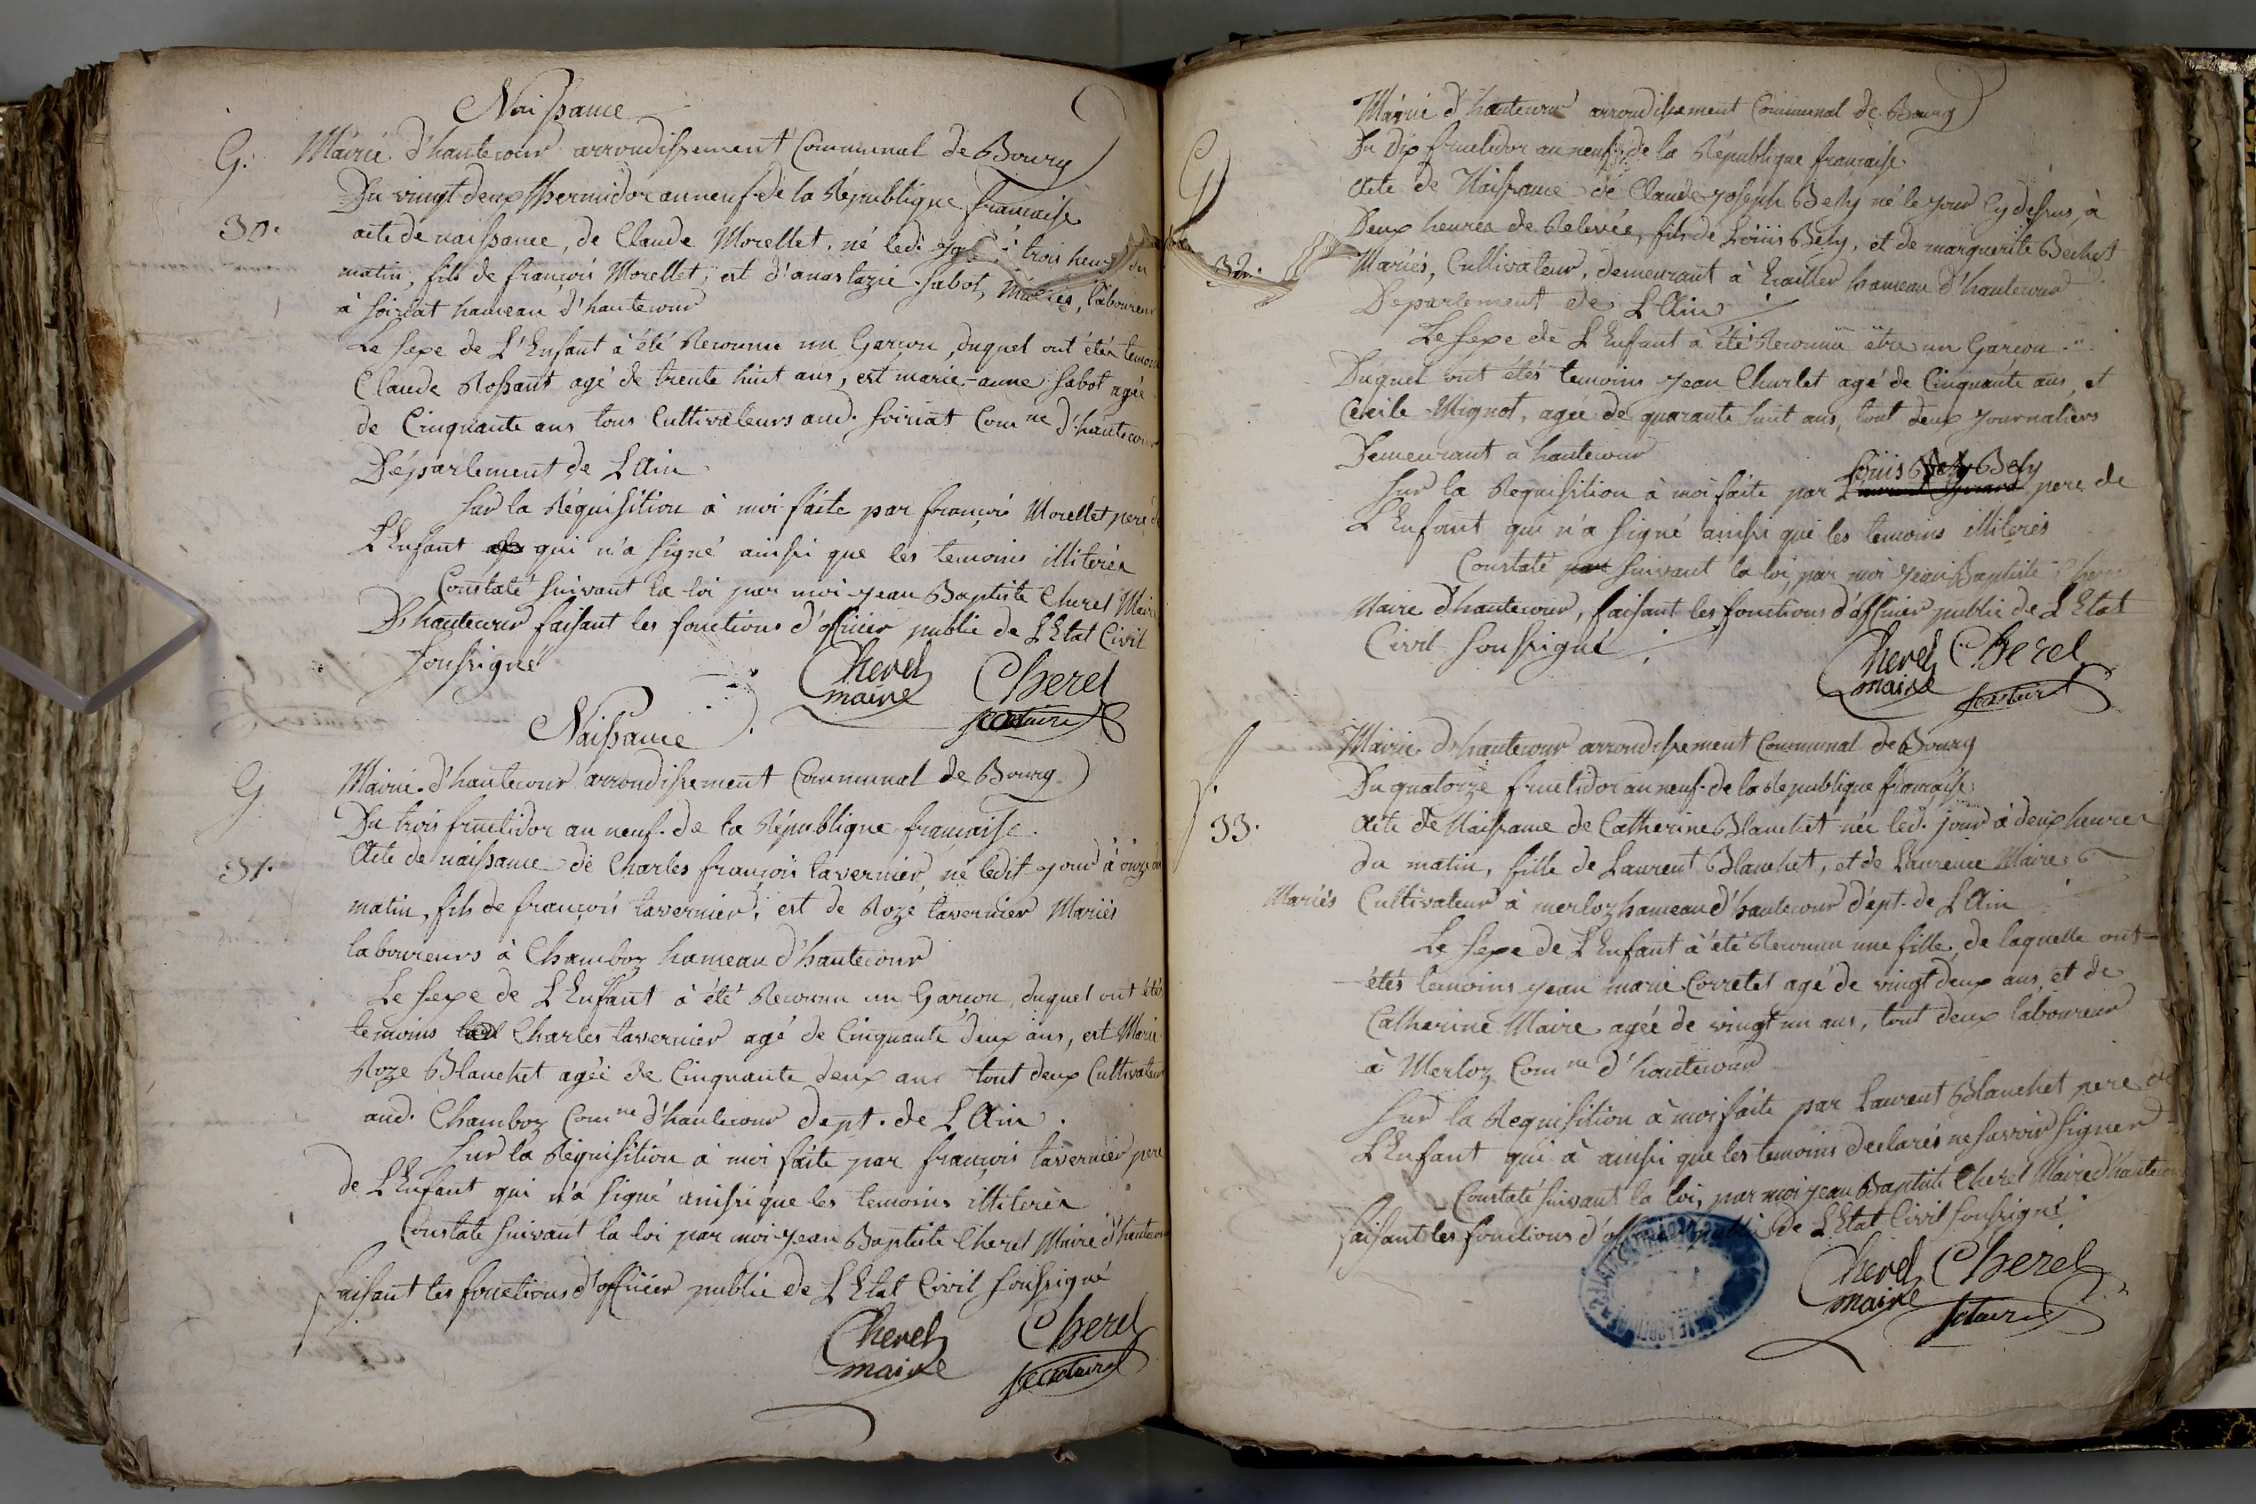 Naissance
G. Mairie d'hautecour arrondissement Communal de Bourg
Du vingt deux thermidor an neuf de la République francaise
30. acte de naissance, de Claude Morellet, né led. à trois heures du
matin, fils de françois Morellet, est d'anastazie Sabot, Mariés, laboureurs
à soiriat hameau d'hautecour
Le sexe de L'Enfant à été Reconnu un Garcon, duquel ont étés temoins
Claude Rossant agé de trente huit ans, est marie-anne Sabot agée
de Cinquante ans tous Cultivateurs aud. soiriat Comne d'hautecour
Département de L'Ain
Sur la Réquisition à moi faite par françois Morellet pere de
L'Enfant qui n'a signé ainssi que les temoins illiterés
Constaté suivant la loi par moi jean Baptiste Cherel Maire
D'hautecour faisant les fonctions d'officier public de L'Etat Civil
soussigné
Cherel Cherel
maire secretaire
Naissance
G Mairie d'hautecour arrondissement Communal de Bourg
Du trois fructidor an neuf de la République francaise
31. Acte de naissance de Charles françois tavernier, né ledit jour à onze
matin, fils de françois tavernier, est de Roze tavernier Mariés
laboureurs à Chamboz hameau d'hautecour
Le sexe de L'Enfant à été Reconnu un Garcon, duquel ont étés
temoins Charles tavernier agé de Cinquante deux ans, est Marie
Roze Blanchet agée de Cinquante deux ans tout deux Cultivateurs
aud. Chamboz Comne d'hautecour dept. de L'Ain
Sur la Réquisition à moi faite par françois tavernier pere
de L'Enfant qui n'a signé ainssi que les temoins illiterés
Constaté suivant la loi par moi jean Baptiste Cherel Maire d'hautecour
faisant les fonctions d'officier public de L'Etat Civil soussigné
Cherel Cherel
maire secretaire
Mairie d'hautecour arrondissement Communal de Bourg
G Du dix fructidor an neuf de la République francaise
Acte de Naissance de Claude joseph Bely né le jour Cy dessus, à
Deux heures de Relevée, fils de Loüis Bely, et de marguerite Bechet
32. Mariés, Cultivateur, demeurant à hameau d'hautecour
Département de L'Ain
Le sexe de L'Enfant à été Reconnu être un Garcon
Duquel ont étés temoins jean Churlet agé de Cinquante ans, et
Cecile Mignot, agée de quarante huit ans, tout deux journaliers
Demeurant à hautecour
Loüis Bely Bely
Sur la Requisition à moi faite par pere de
L'Enfant qui n'a signé ainssi que les temoins illiterés
Constaté par suivant la loi, par moi jean Baptiste Cherel
Maire d'hautecour, faisant les fonctions d'officier public de L'Etat
Civil soussigné
Cherel Cherel
maire secretaire
f. Mairie d'hautecour arrondissement Communal de Bourg
Du quatorze fructidor an neuf de la République francaise
33. Acte de Naissance de Catherine Blanchet née led. jour à deux heures
du matin, fille de Laurent Blanchet, et de Laurence Maire
Mariés Cultivateur à merloz hameau d'hautecour dépt. de L'Ain
Le sexe de L'Enfant à été Reconnu une fille, de laquelle ont
étés temoins jean marie Corretet agé de vingt deux ans, et de
Catherine Maire agée de vingt un ans, tout deux laboureur
à Merloz Comne d'hautecour
Sur la Requisition à moi faite par Laurent Blanchet pere de
L'Enfant qui à ainssi que les temoins declarés ne savoir signer
Constaté suivant la loi, par moi jean Baptiste Cherel Maire d'hautecour
faisant les fonctions d'officier public de L'Etat Civil soussigné
Cherel Cherel
maire secretaire